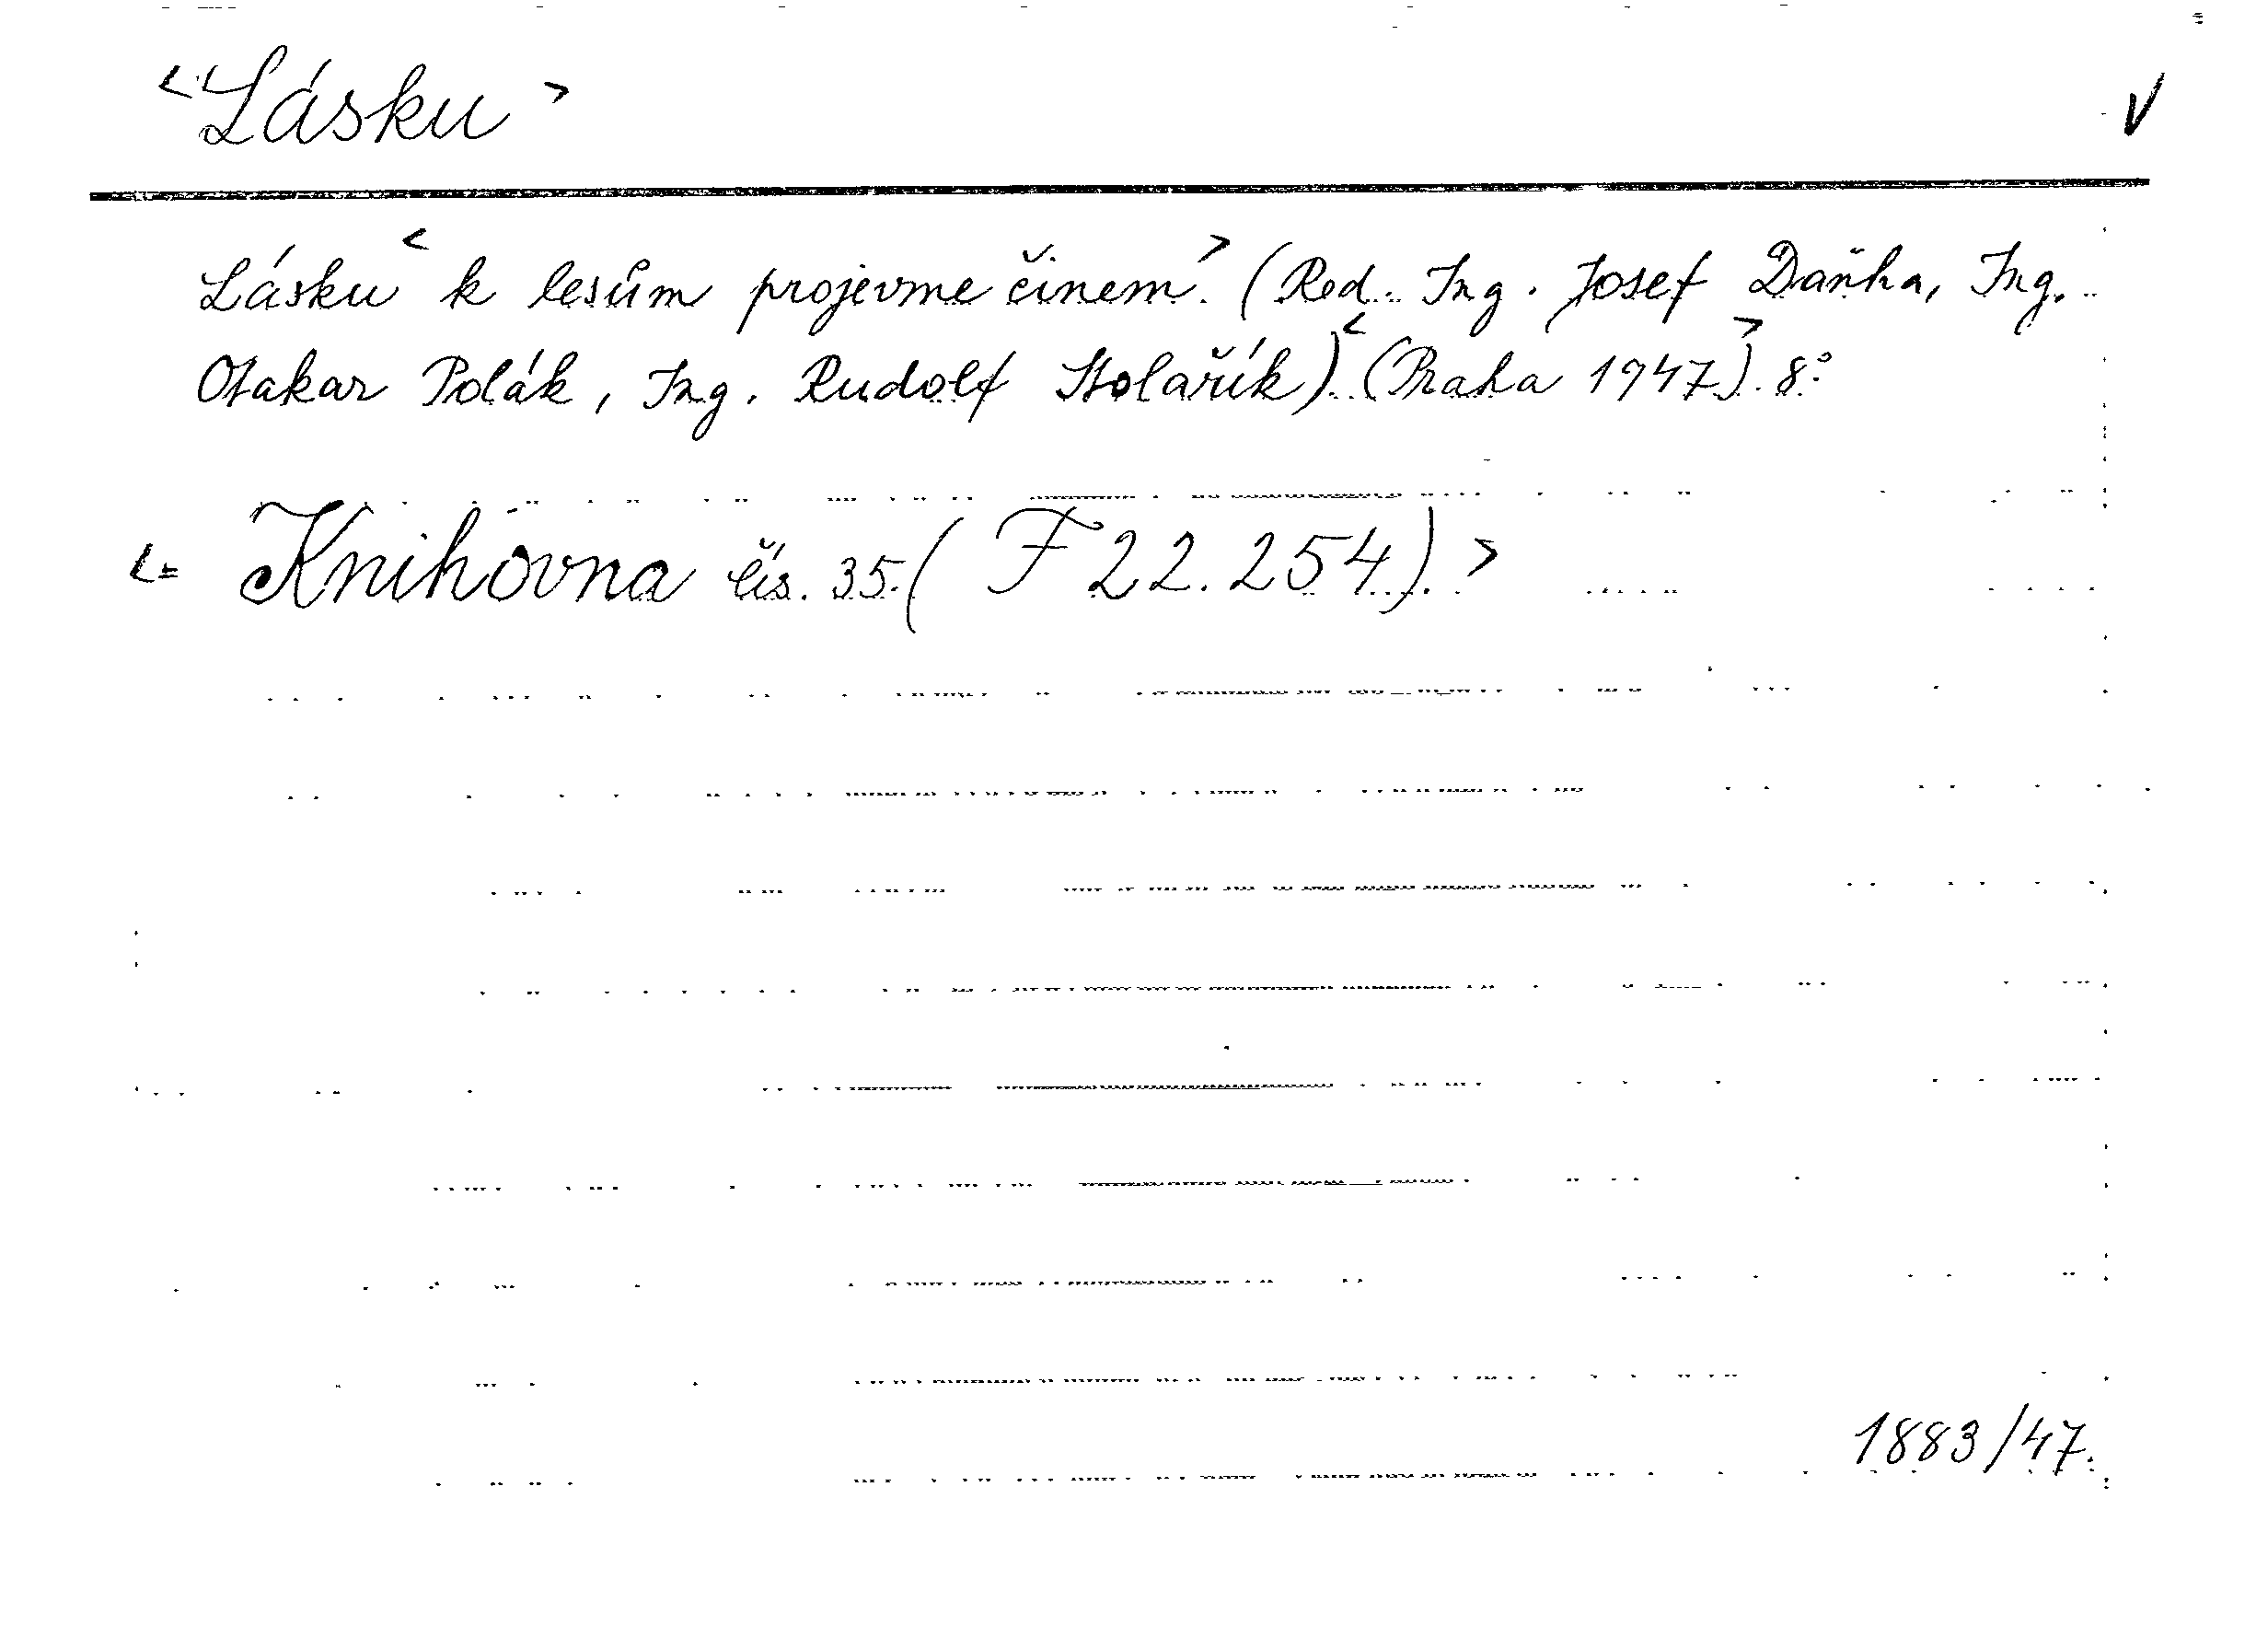 <Lásku> V
Lásku< k lesům projevme činem.> (Red. Ing. Josef Daňha, Ing.
Otakar Polák, Ing. Rudolf Stolařík).<(Praha 1947).> 8.°
<= Knihovna čís. 35. (F 22.254).>
1883/47.